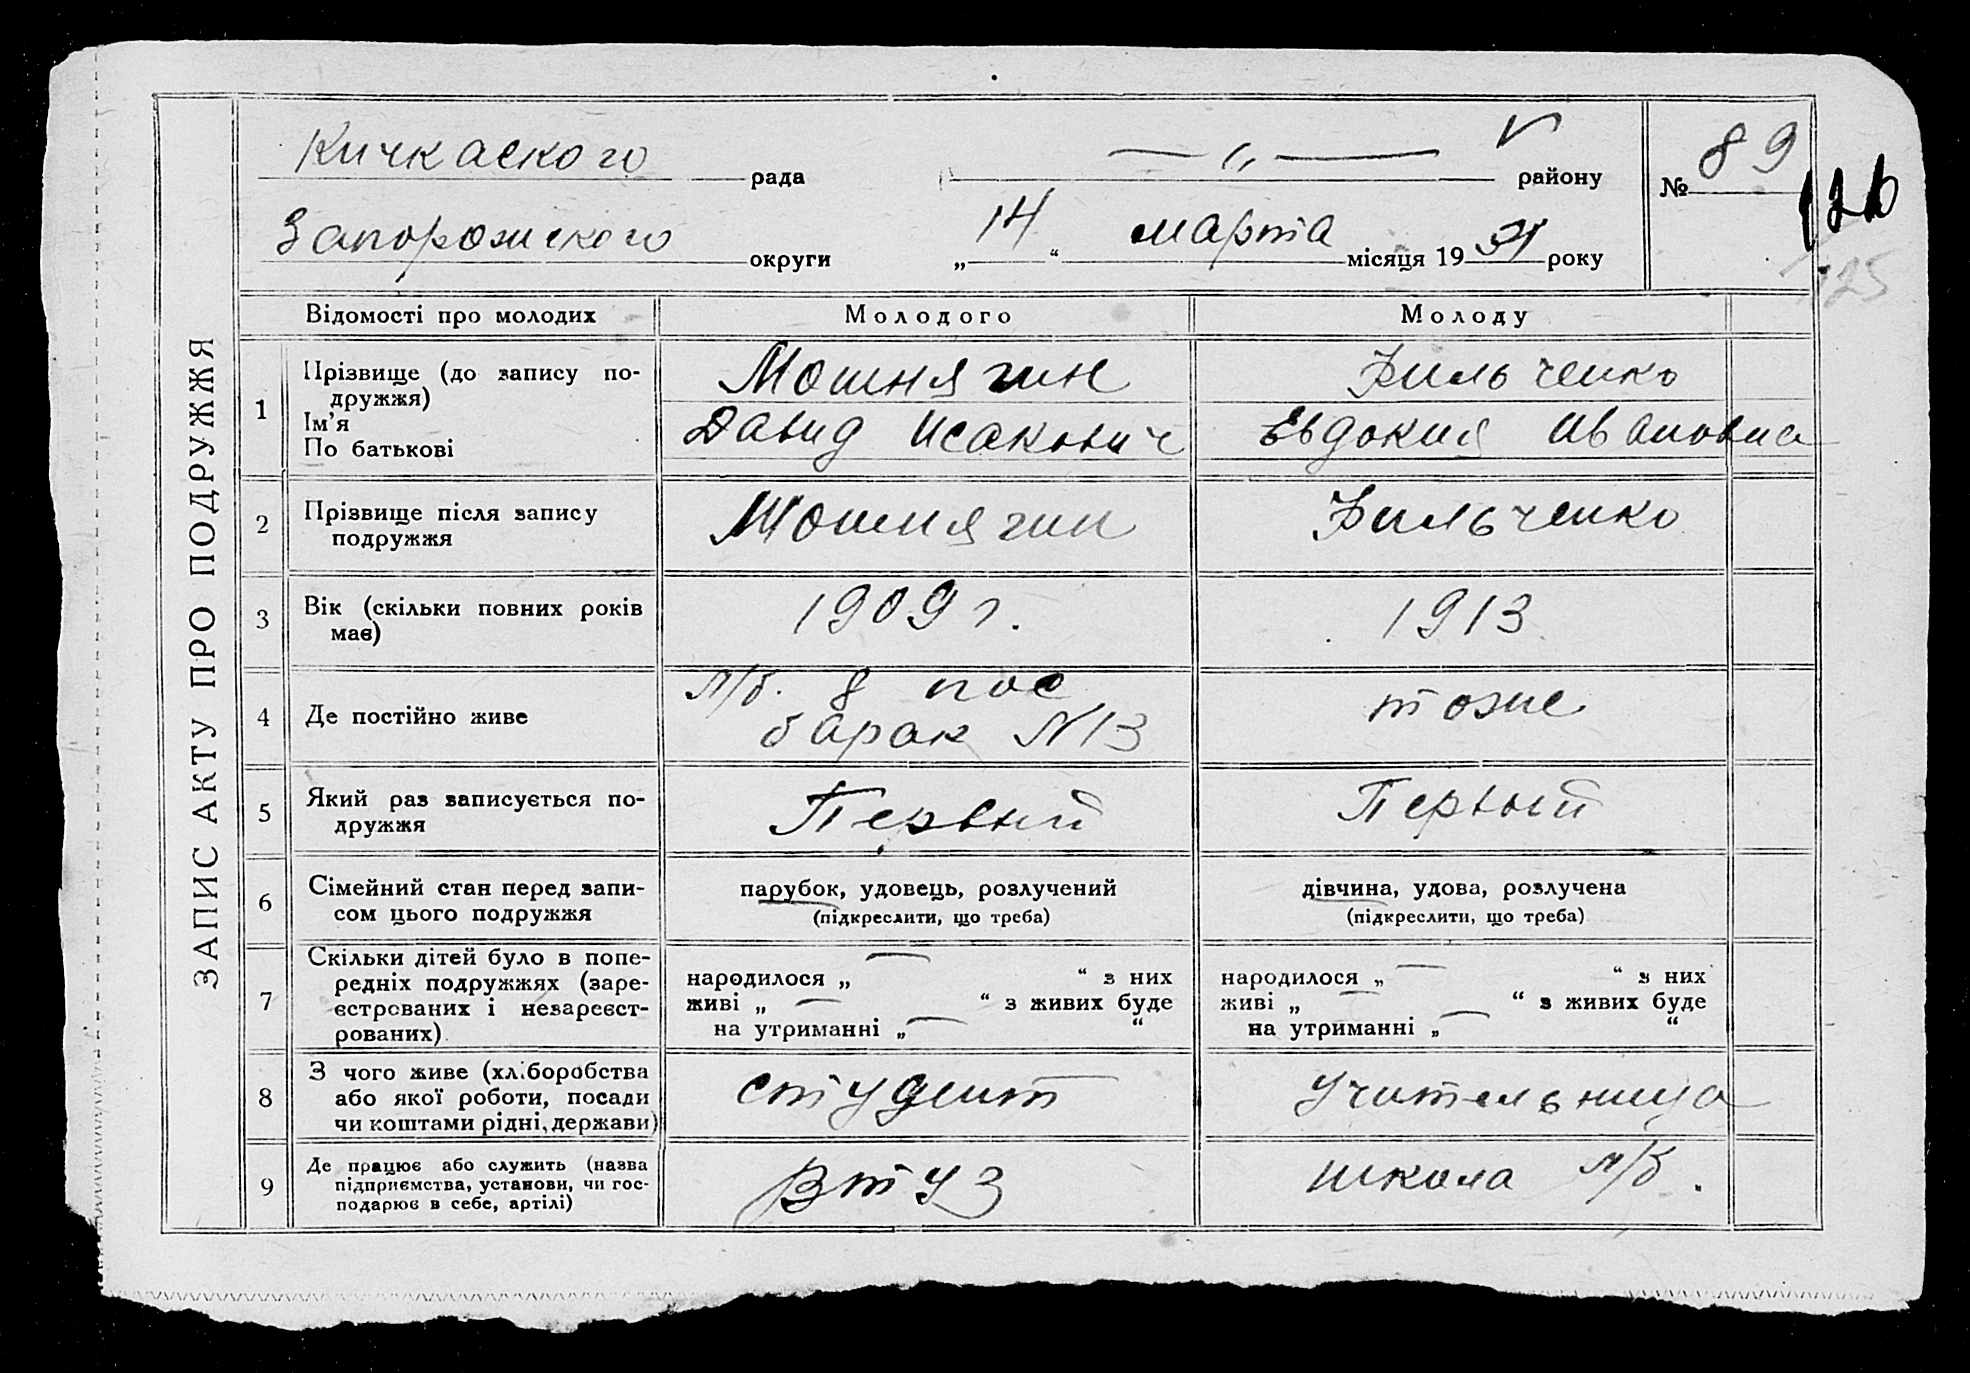 ЗАПИС АКТУ ПРО ПОДРУЖЖЯ
Кичкаского рада — „ — району
№ 89
126
125
Запорожского округи „ 14 “ марта місяця 19 31 року
Відомості про молодих Молодого Молоду
1 Прізвище (до запису по-
дружжя)
Ім'я
По батькові
Мошнягин
Давид Исакович
Фильченко
Евдокия Ивановна
2 Прізвище після запису
подружжя
Мошнягин
Фильченко
3 Вік (скільки повних років
має)
1909 г.
1913
4 Де постійно живе
л/б. 8 пос
барак N 13
тоже
5 Який раз записується по-
дружжя
Первый
Первый
6 Сімейний стан перед запи-
сом цього подружжя
парубок, удовець, розлучений
(підкреслити, що треба)
дівчина, удова, розлучена
(підкреслити, що треба)
7 Скільки дітей було в попе-
редніх подружжях (заре-
єстрованих і незареєст-
рованих)
народилося „ — “ з них
живі „ — “ з живих буде
на утриманні „ — “
народилося „ — “ з них
живі „ — “ з живих буде
на утриманні „ — “
8 З чого живе (хліборобства
або якої роботи, посади
чи коштами рідні, держави)
студент
учительница
9 Де працює або служить (назва
підприємства, установи, чи гос-
подарює в себе, артілі)
Втуз
школа л/б.